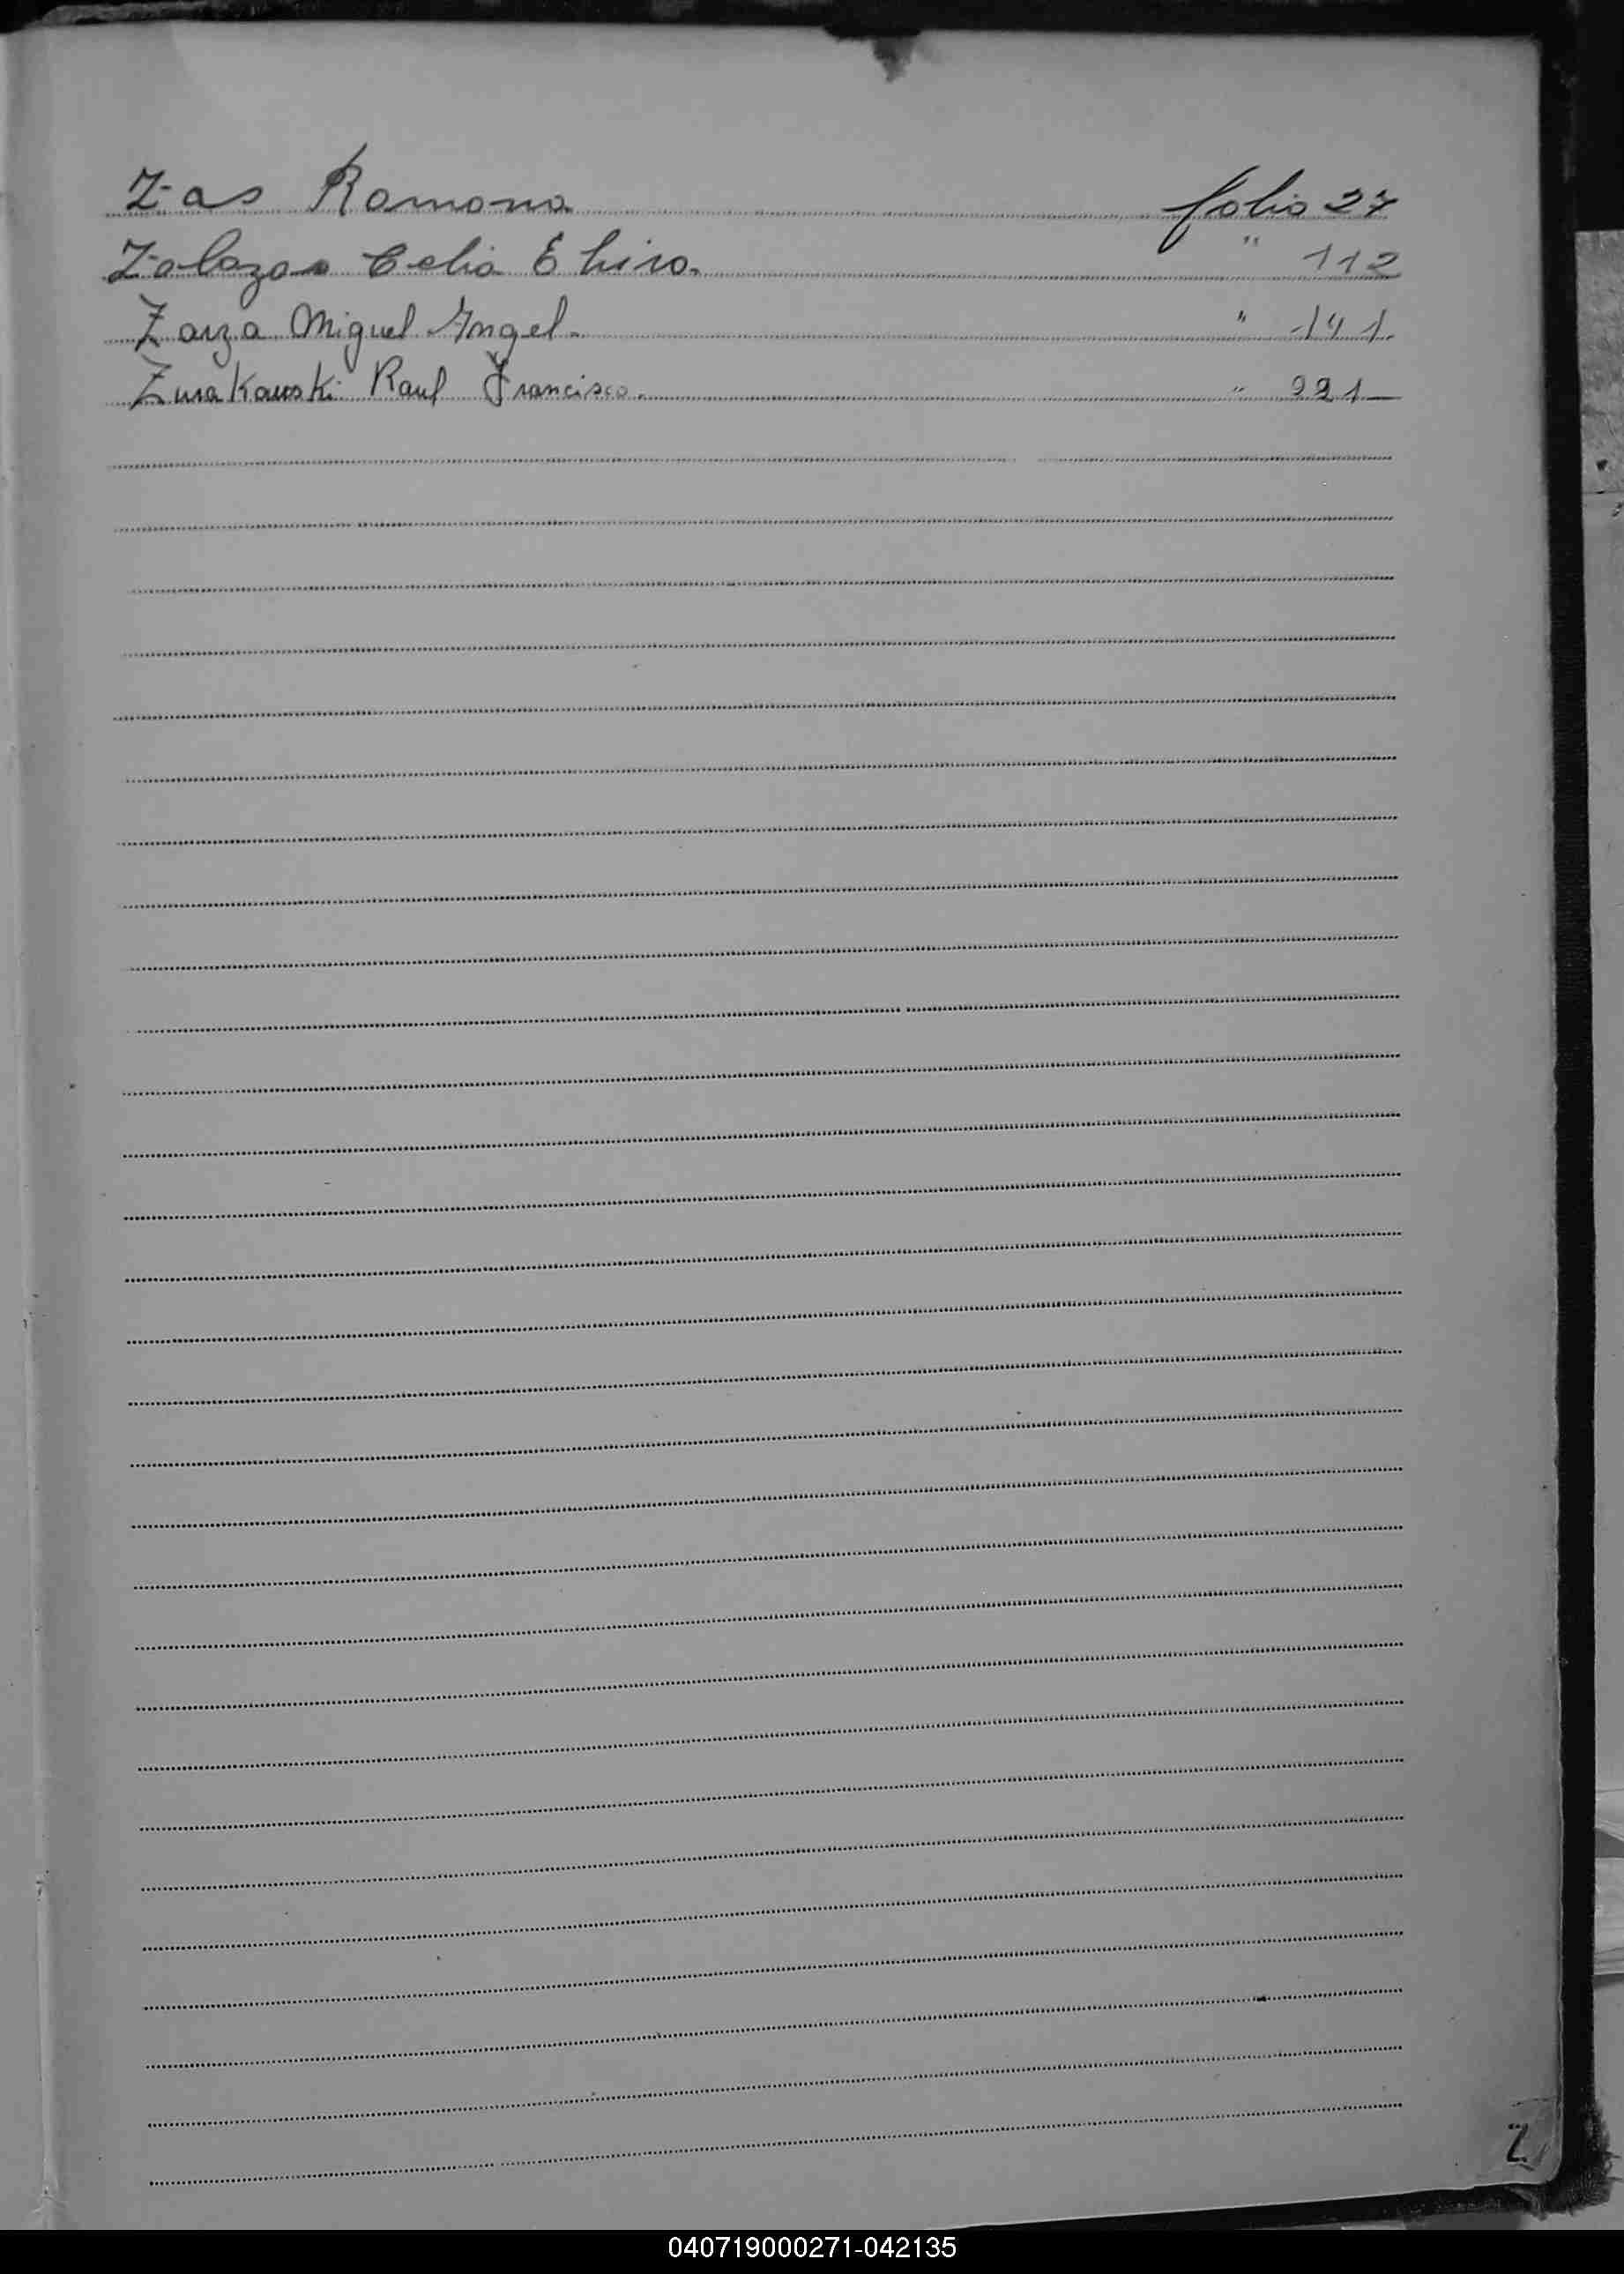 Zas Ramona folio 27
Zalazar Celia Elvira. " 112
Zarza Miguel Angel. " 141.
Zurakowski Raul Francisco. " 221
Z
040719000271-042135